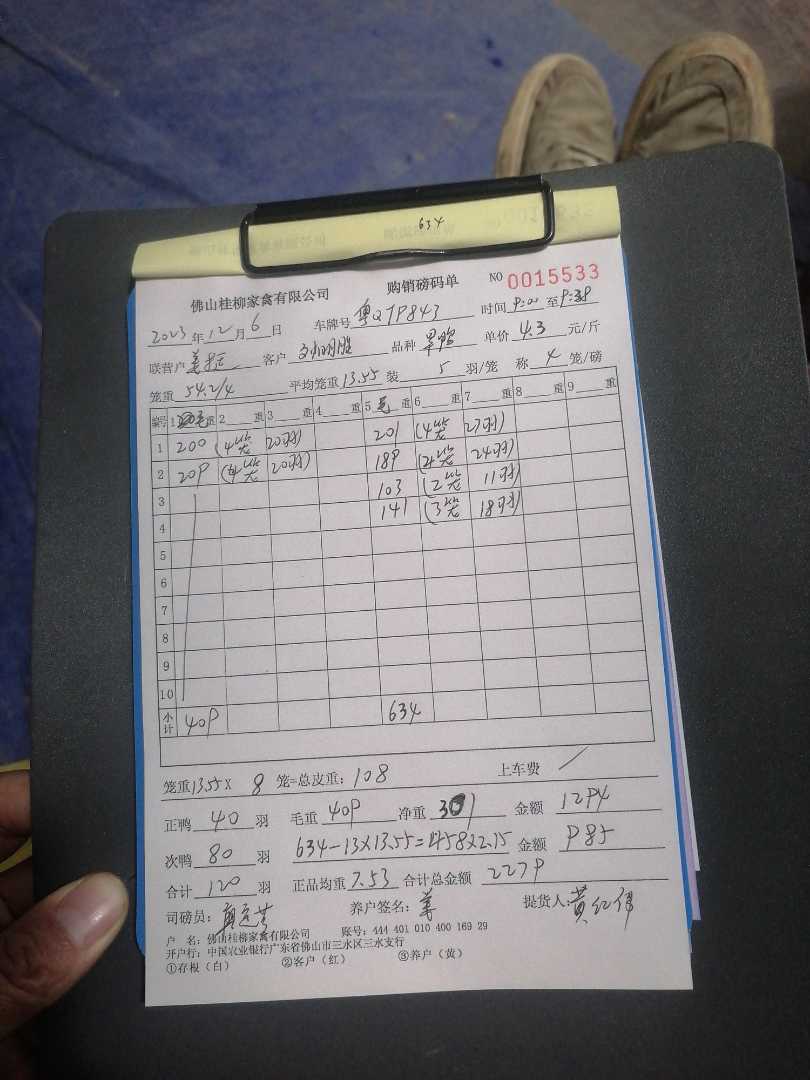 634
佛山桂柳家禽有限公司 购销磅码单 NO 0015533
2023年12月6日 车牌号 粤Q7P843 时间 9:00 至 9:38
联营户 姜 客户 刘明胜 品种 单价 4.3 元/斤
笼重 54.2/4 平均笼重 13.55 装 5 羽/笼 称 4 笼/磅
编号 1 毛重 2 重 3 重 4 重 5 毛重 6 重 7 重 8 重 9 重
1 200 (4笼 20羽) 201 (4笼 27羽)
2 209 (4笼 20羽) 189 (4笼 24羽)
3 103 (2笼 11羽)
4 141 (3笼 18羽)
5
6
7
8
9
10
小计 409 634
笼重 13.55 X 8 笼=总皮重: 108 上车费 /
正鸭 40 羽 毛重 409 净重 301 金额 1294
次鸭 80 羽 634-13X13.55=458X2.15 金额 985
合计 120 羽 正品均重 7.53 合计总金额 2279
司磅员: 养户签名: 姜 提货人: 黄红伟
户 名: 佛山桂柳家禽有限公司 账号: 444 401 010 400 169 29
开户行: 中国农业银行广东省佛山市三水区三水支行
①存根(白) ②客户(红) ③养户(黄)